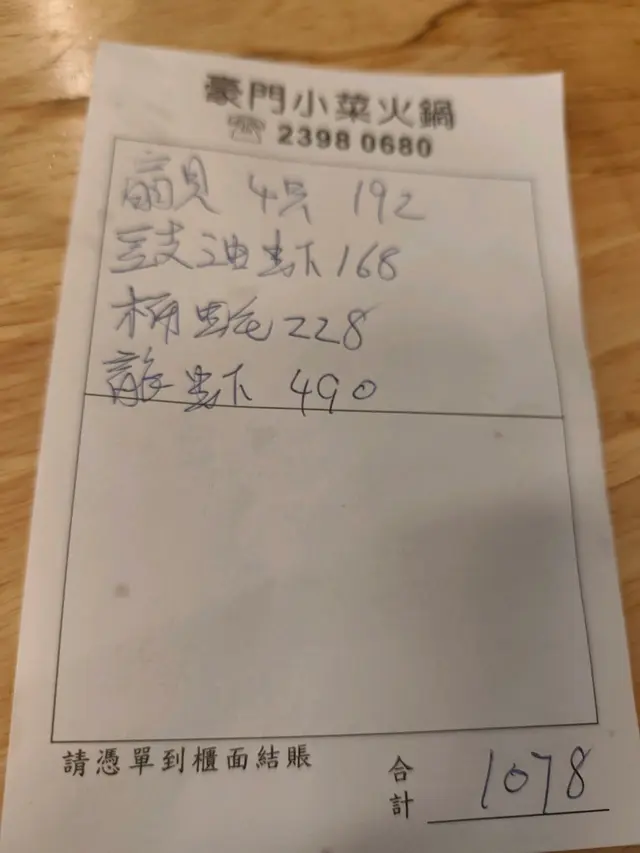 豪門小菜火鍋
☎ 2398 0680
扇貝 4只 192
豉油虾 168
桶蚝 228
龍虾 490
請憑單到櫃面結賬
合計 1078